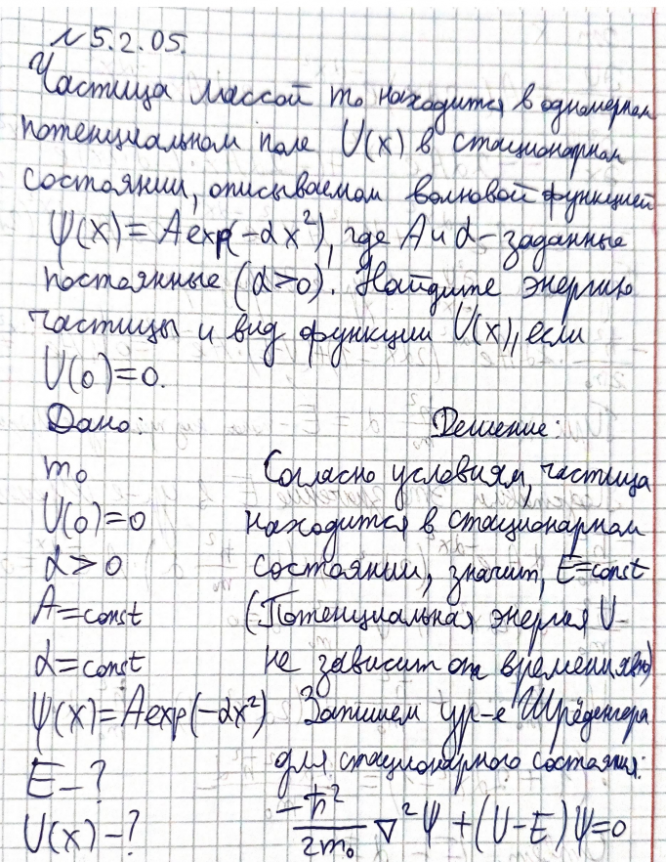 №5.2.05.
Частица массой m₀ находится в одномерном
потенциальном поле U(x) в стационарном
состоянии, описываемом волновой функцией
ψ(x)=A exp(-αx²), где A и α-заданные
постоянные (α>0). Найдите энергию
частицы и вид функции U(x), если
U(0)=0.
Дано: Решение:
m₀ Согласно условиям, частица
U(0)=0 находится в стационарном
α>0 состоянии, значит, E=const
A=const (Потенциальная энергия U-
α=const не зависит от времени явно)
ψ(x)=Aexp(-αx²) Запишем ур-е Шрёденгера
E-? для стационарного состояния:
U(x)-? -ħ²/2m₀ ∇²ψ+(U-E)ψ=0